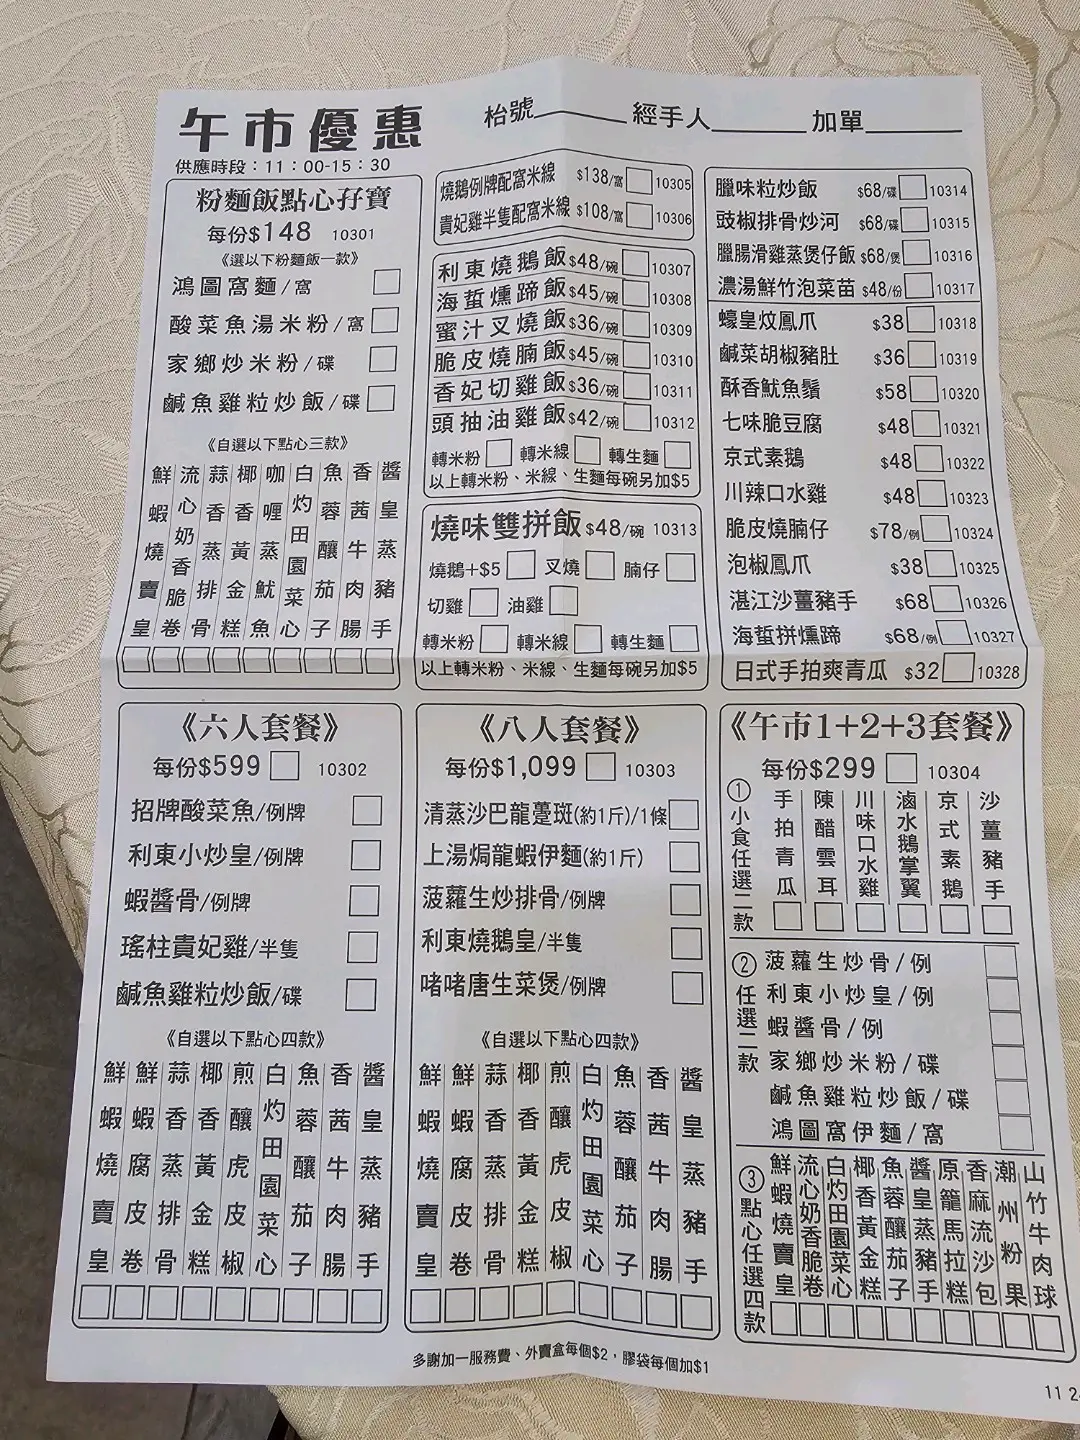 午市優惠
枱號 經手人 加單
供應時段：11：00-15：30
粉麵飯點心孖寶
每份$148 10301
《選以下粉麵飯一款》
鴻圖窩麵/窩
酸菜魚湯米粉/窩
家鄉炒米粉/碟
鹹魚雞粒炒飯/碟
《自選以下點心三款》
鮮蝦燒賣皇
流心奶香脆卷
蒜香蒸排骨
椰香黃金糕
咖喱蒸魷魚
白灼田園菜心
魚蓉釀茄子
香茜牛肉腸
醬皇蒸豬手
燒鵝例牌配窩米線 $138/窩 10305
貴妃雞半隻配窩米線 $108/窩 10306
利東燒鵝飯 $48/碗 10307
海蜇燻蹄飯 $45/碗 10308
蜜汁叉燒飯 $36/碗 10309
脆皮燒腩飯 $45/碗 10310
香妃切雞飯 $36/碗 10311
頭抽油雞飯 $42/碗 10312
轉米粉 轉米線 轉生麵
以上轉米粉、米線、生麵每碗另加$5
燒味雙拼飯 $48/碗 10313
燒鵝+$5 叉燒 腩仔
切雞 油雞
轉米粉 轉米線 轉生麵
以上轉米粉、米線、生麵每碗另加$5
臘味粒炒飯 $68/碟 10314
豉椒排骨炒河 $68/碟 10315
臘腸滑雞蒸煲仔飯 $68/煲 10316
濃湯鮮竹泡菜苗 $48/份 10317
蠔皇炆鳳爪 $38 10318
鹹菜胡椒豬肚 $36 10319
酥香魷魚鬚 $58 10320
七味脆豆腐 $48 10321
京式素鵝 $48 10322
川辣口水雞 $48 10323
脆皮燒腩仔 $78/例 10324
泡椒鳳爪 $38 10325
湛江沙薑豬手 $68 10326
海蜇拼燻蹄 $68/例 10327
日式手拍爽青瓜 $32 10328
《六人套餐》
每份$599 10302
招牌酸菜魚/例牌
利東小炒皇/例牌
蝦醬骨/例牌
瑤柱貴妃雞/半隻
鹹魚雞粒炒飯/碟
《自選以下點心四款》
鮮蝦燒賣皇
鮮蝦腐皮卷
蒜香蒸排骨
椰香黃金糕
煎釀虎皮椒
白灼田園菜心
魚蓉釀茄子
香茜牛肉腸
醬皇蒸豬手
《八人套餐》
每份$1,099 10303
清蒸沙巴龍躉斑(約1斤)/1條
上湯焗龍蝦伊麵(約1斤)
菠蘿生炒排骨/例牌
利東燒鵝皇/半隻
啫啫唐生菜煲/例牌
《自選以下點心四款》
鮮蝦燒賣皇
鮮蝦腐皮卷
蒜香蒸排骨
椰香黃金糕
煎釀虎皮椒
白灼田園菜心
魚蓉釀茄子
香茜牛肉腸
醬皇蒸豬手
《午市1+2+3套餐》
每份$299 10304
①小食任選二款
手拍青瓜
陳醋雲耳
川味口水雞
滷水鵝掌翼
京式素鵝
沙薑豬手
②任選二款
菠蘿生炒骨/例
利東小炒皇/例
蝦醬骨/例
家鄉炒米粉/碟
鹹魚雞粒炒飯/碟
鴻圖窩伊麵/窩
③點心任選四款
鮮蝦燒賣皇
流心奶香脆卷
白灼田園菜心
椰香黃金糕
魚蓉釀茄子
醬皇蒸豬手
原籠馬拉糕
香麻流沙包
潮州粉果
山竹牛肉球
多謝加一服務費、外賣盒每個$2，膠袋每個加$1
11